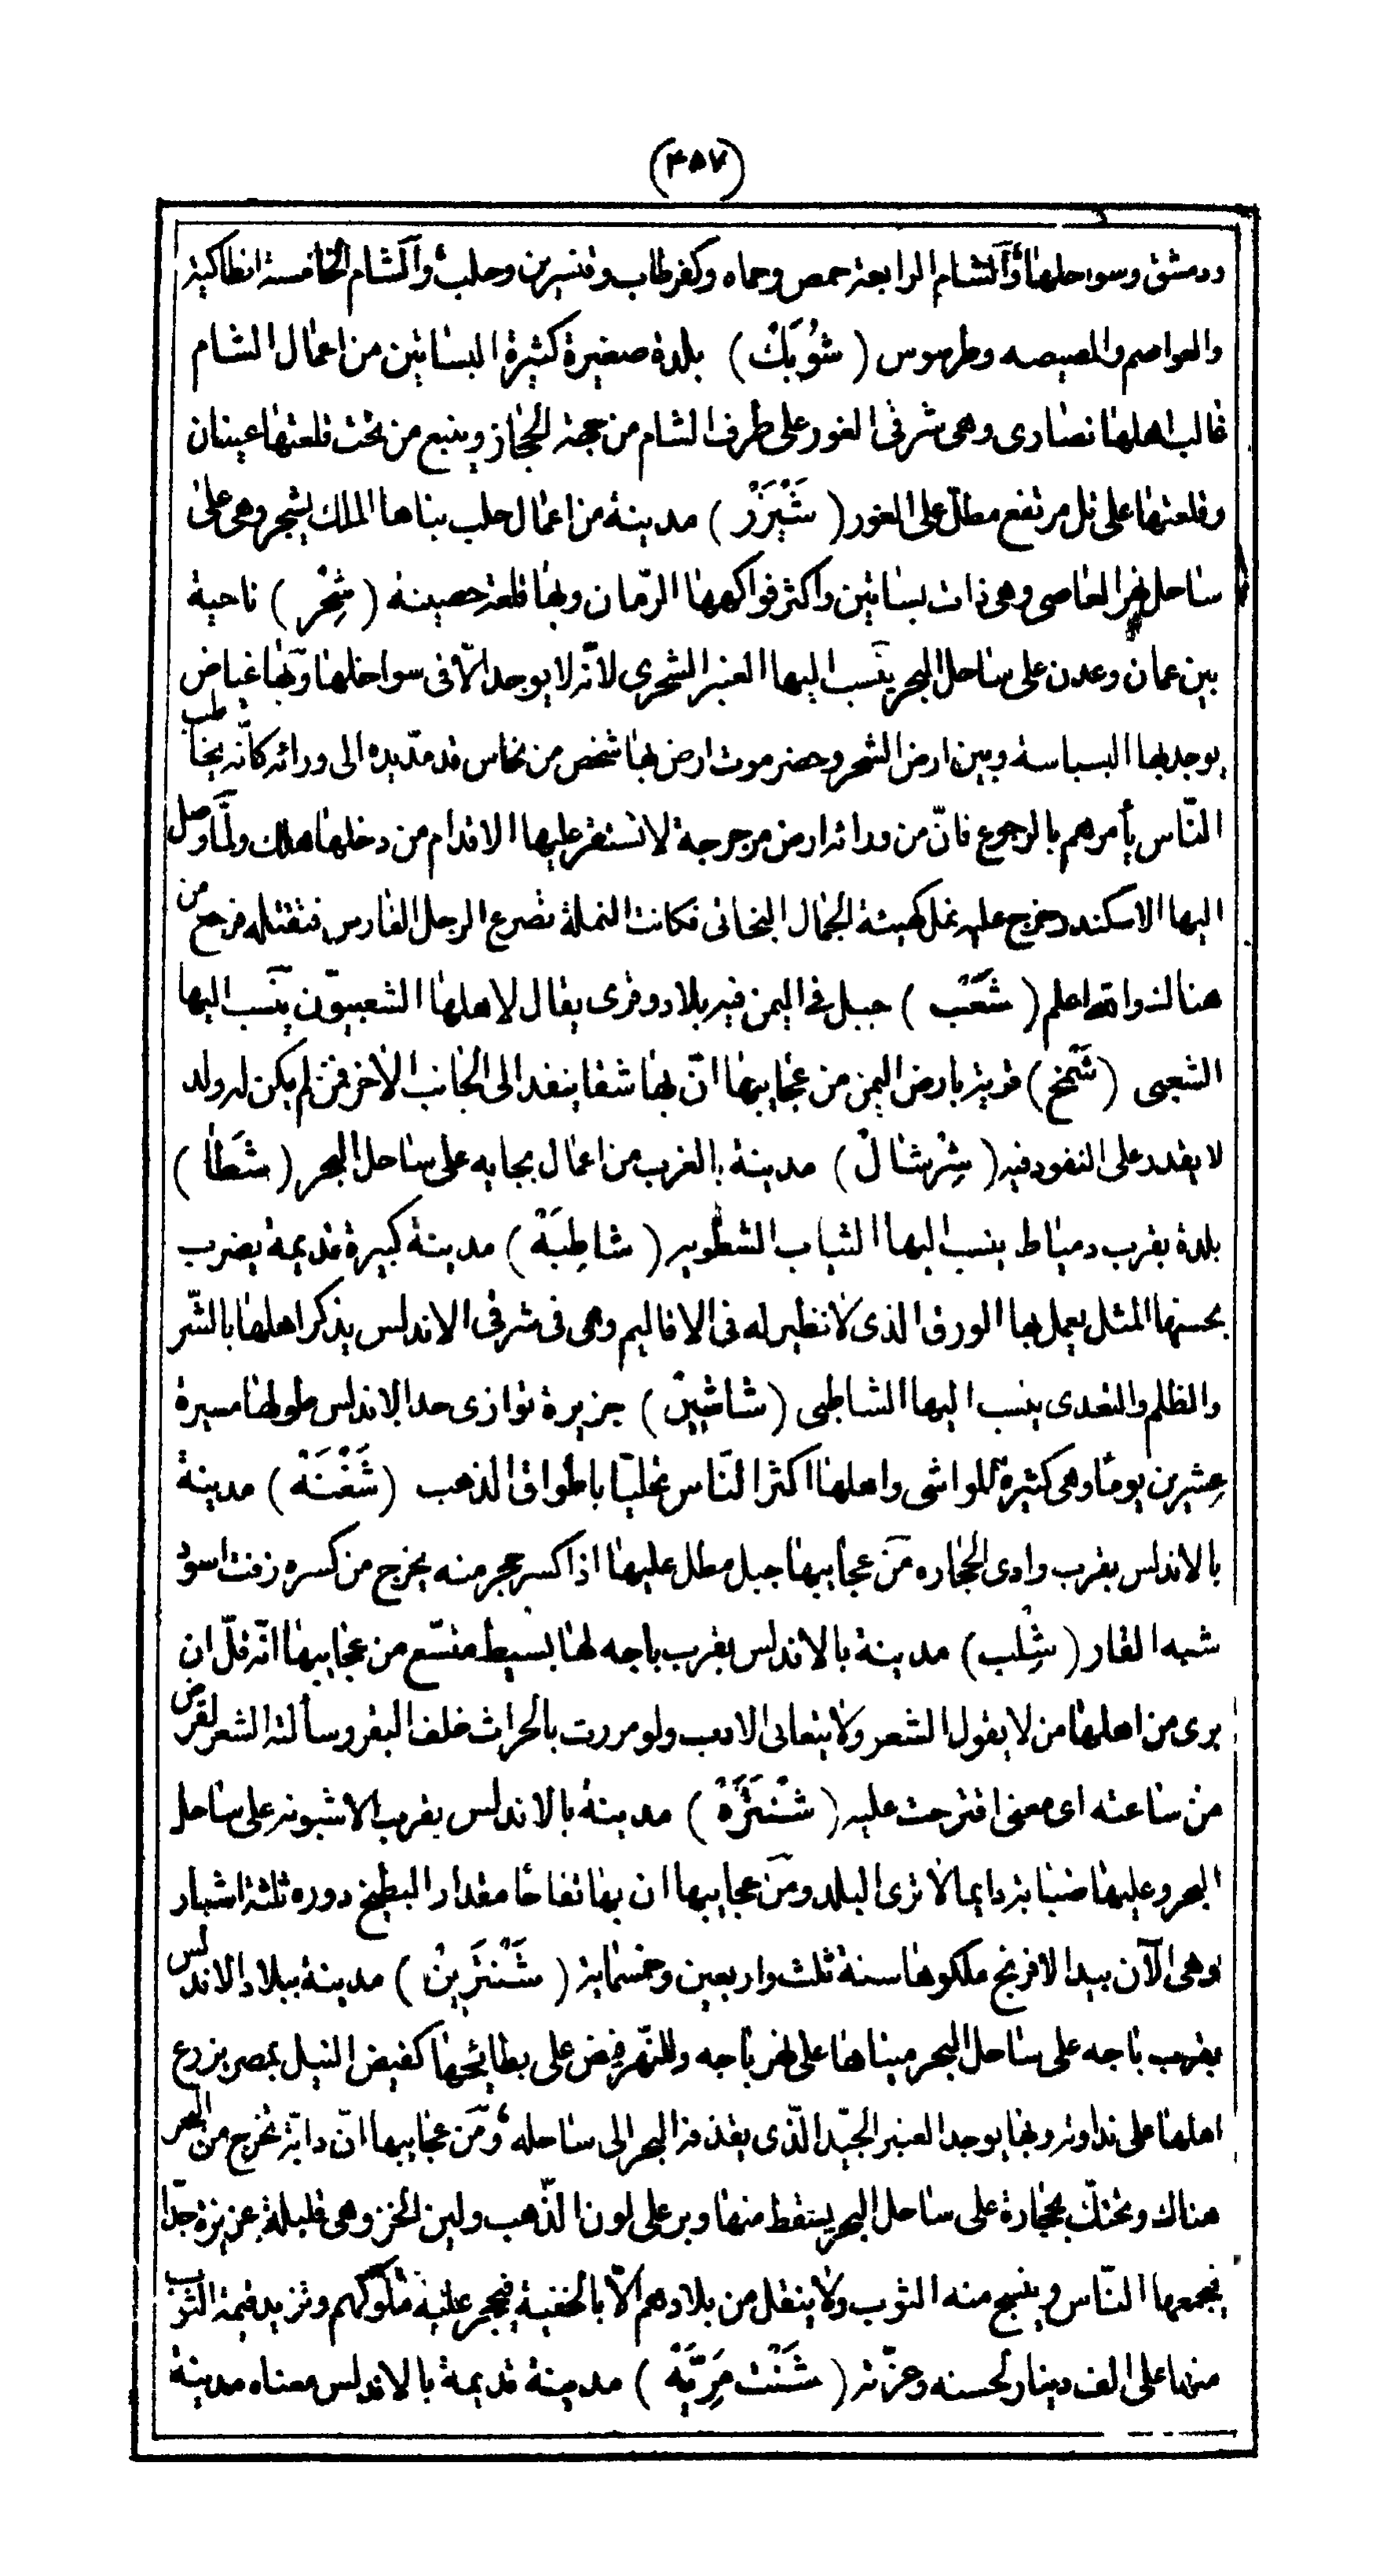 (۴۵۷)
ودمشق وسواحلها والشام الرابعة حمص وحماه وكفرطاب وقنسرين وحلب والشام الخامسة انطاكية
والعواصم والمصيصه وطرسوس (شَوْبَكْ) بلدة صغيرة كثيرة البساتين من اعمال الشام
غالب اهلها نصارى وهى شرقى الغور على طرف الشام من جهة الحجاز وينبع من تحت قلعتها عينان
وقلعتها على تل مرتفع مطلّ على الغور (شَيْزَرْ) مدينة من اعمال حلب بناها الملك وهى على
ساحل نهر العاصى وهى ذات بساتين واكثر فواكهها الرّمان وبها قلعة حصينة (شِحْر) ناحية
بين عمان وعدن على ساحل البحر ينسب اليها العنبر الشحرى لانّه لا يوجد الّا فى سواحلها وبها غياض
يوجد بها البسباسة وبين ارض الشحر وحضرموت ارض بها شخص من نحاس قد مدّ يده الى ورائه كانّه يخاطب
النّاس يأمرهم بالرجوع فانّ من ورائه ارض مرجرجة لا تستقر عليها الاقدام من دخلها هلك ولمّا وصل
اليها الاسكندر خرج عليه نمل كهيئة الجمال البخاتى فكانت النملة تصرع الرجل الفارس فتقتله فرجع من
هنالك والله اعلم (شَعْب) جبل فى اليمن فيه بلاد وقرى يقال لاهلها الشعبيّون ينسب اليها
الشعبى (شَمْخ) قرية بارض اليمن من عجايبها انّ بها شقا ينفد الى الجانب الاخر فمن لم يكن له ولد
لا يقدر على النفود فيه (شِرْشَالْ) مدينة بالغرب من اعمال بجايه على ساحل البحر (شَطَا)
بلدة بقرب دمياط ينسب اليها الثياب الشطويه (شاطِبَة) مدينة كبيرة قديمة يضرب
بحسنها المثل يعمل بها الورق الذى لا نظير له فى الاقاليم وهى فى شرقى الاندلس يذكر اهلها بالشّر
والظلم والتعدى ينسب اليها الشاطبى (شاشِين) جزيرة توازى حد الاندلس طولها مسيرة
عشرين يوما وهى كثيرة المواشى واهلها اكثر النّاس تحليّا باطواق الذهب (شَغْنَة) مدينة
بالاندلس بقرب وادى الحجاره من عجايبها جبل مطل عليها اذا كسر حجر منه يخرج من كسره زفت اسود
شبه القار (شِلْب) مدينة بالاندلس بقرب باجه لها بسيط متسّع من عجايبها انّه قلّ ان
يرى من اهلها من لا يقول الشعر ولا يتعانى الادب ولو مررت بالحراث خلف البقر وسألته الشعر لقرض
من ساعته اى معنى اقترحت عليه (شَنْتَرَة) مدينة بالاندلس بقرب الاشبونه على ساحل
البحر وعليها ضبابة دايما لا ترى البلد ومن عجايبها ان بها تفاحا مقدار البطيخ دوره ثلثة اشبار
وهى الآن بيد الافرنج ملكوها سنة ثلث واربعين وخمسماية (شَنْتَرِينْ) مدينة ببلاد الاندلس
بقرب باجه على ساحل البحر مبناها على نهر باجه وللنّهر فيض على بطائحها كفيض النيل بمصر يزرع
اهلها على نداوته وبها يوجد العنبر الجيّد الّذى يقذفه البحر الى ساحله ومن عجايبها انّ دابّة تخرج من البحر
هناك وتحتك بحجارة على ساحل البحر يسقط منها وبر على لون الذّهب ولين الخز وهى قليلة عزيزة جدّا
فيجمعها النّاس وينسج منه الثوب ولا ينقل من بلادهم الّا بالخفية فيحجر عليه ملوكهم وتزيد قيمة الثوب
منها على الف دينار لحسنه وعزّته (شَنْت مَرِيَّة) مدينة قديمة بالاندلس معناه مدينة